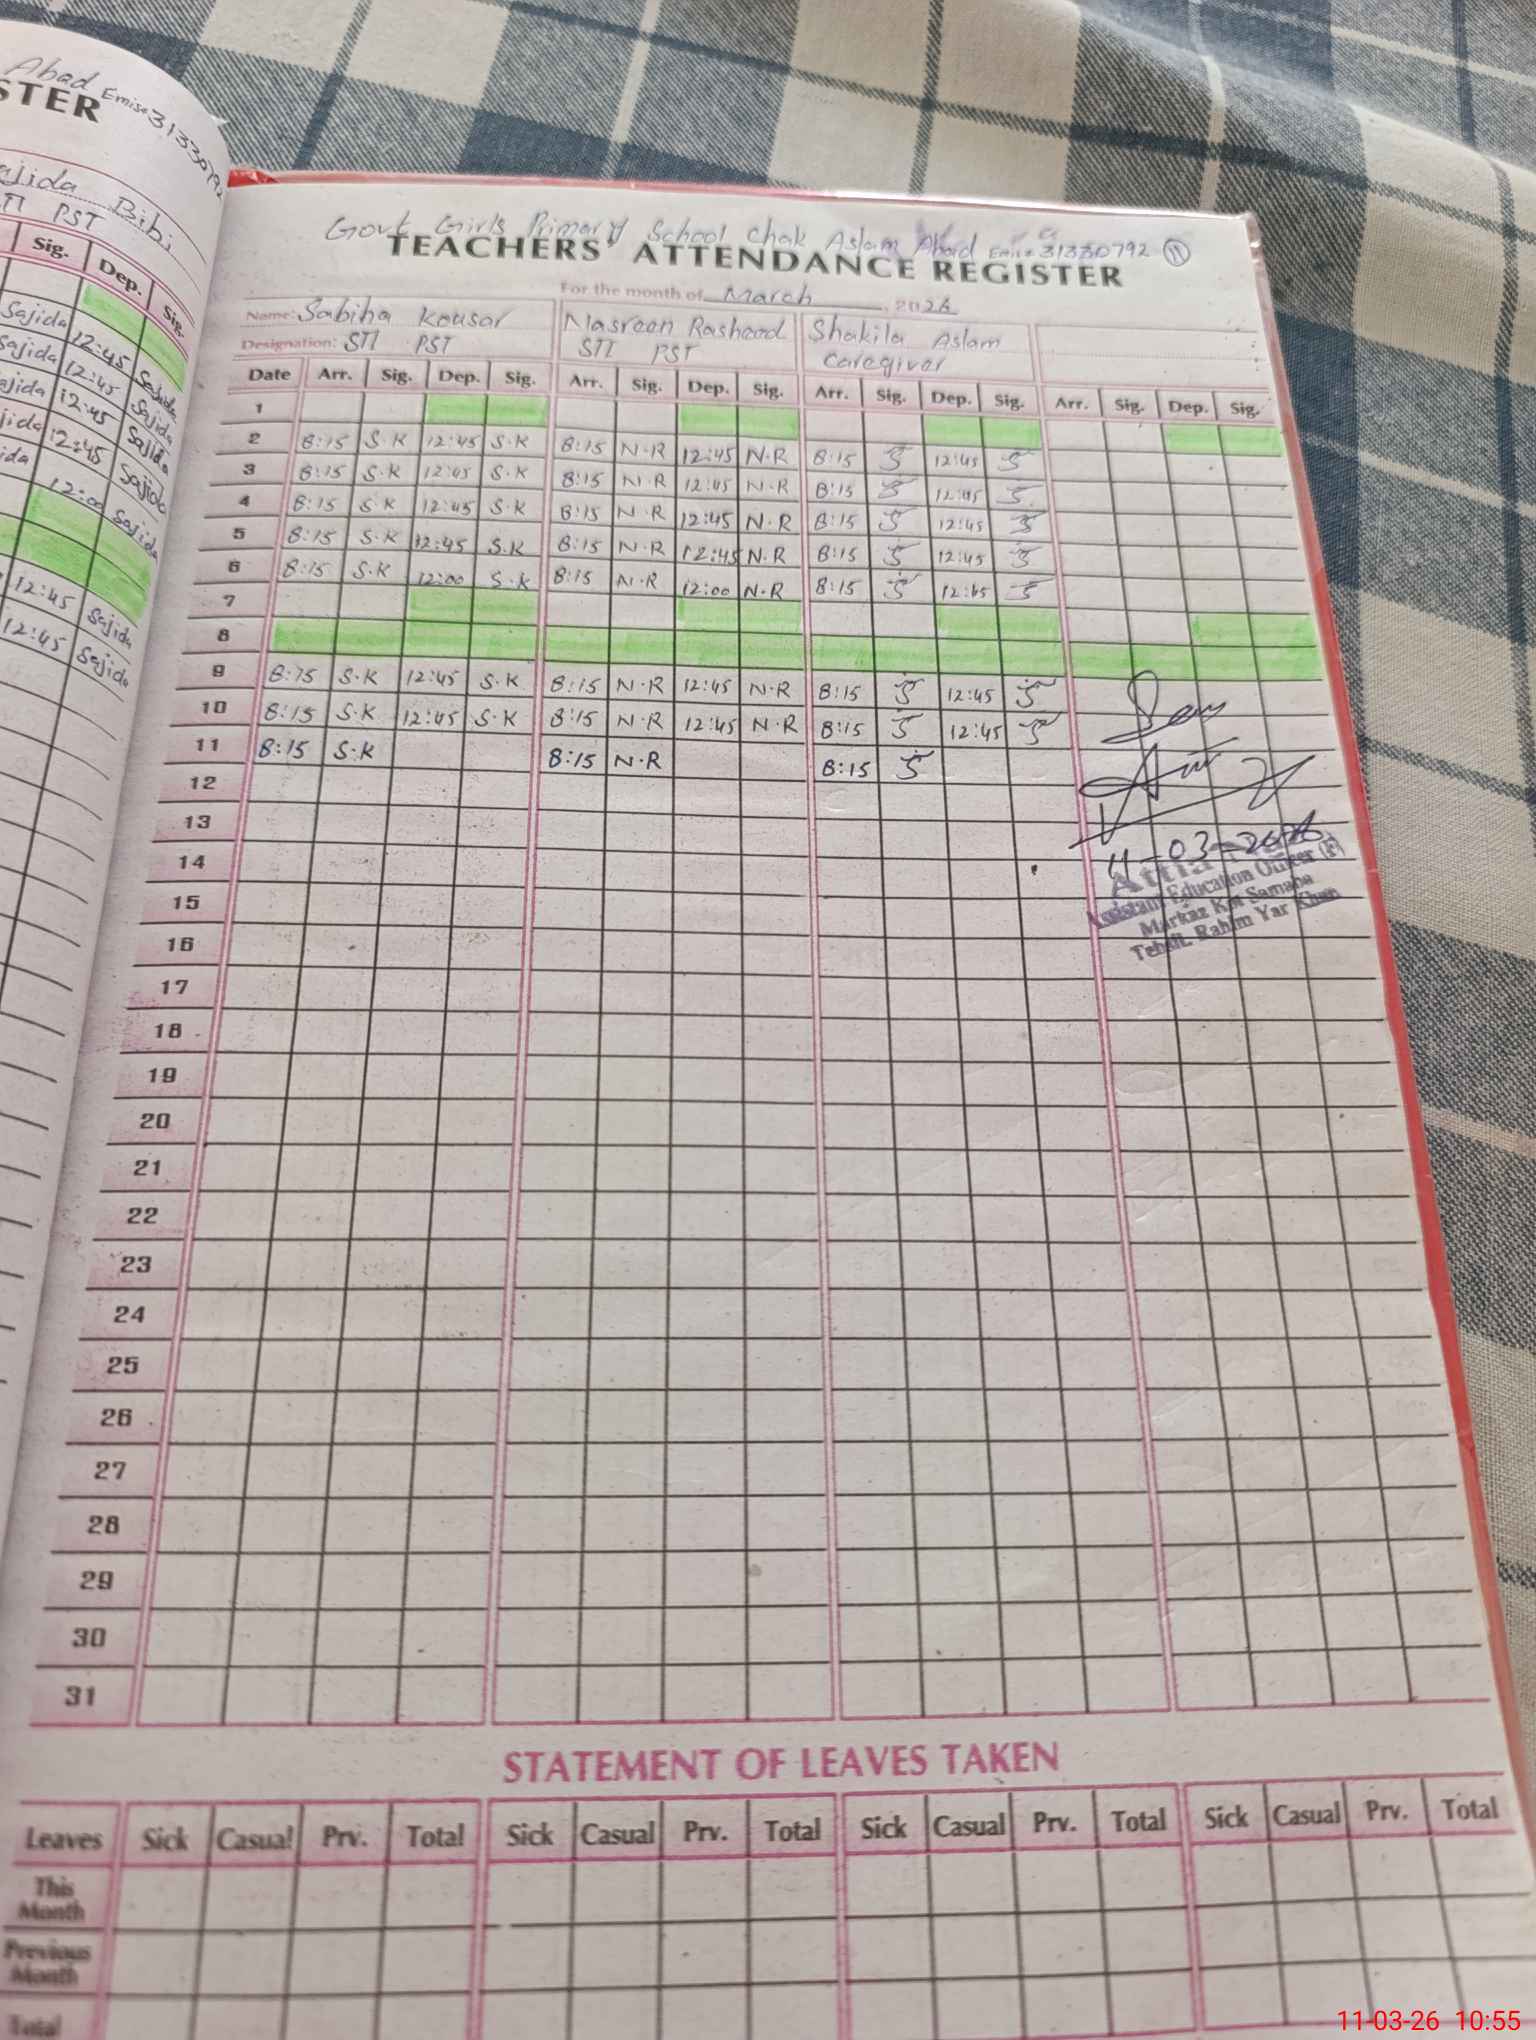 Abad Emis 31330792
STER
Sajida Bibi
STI PST
Sig. Dep. Sig.
Sajida 12:45 Sajida
Sajida 12:45 Sajida
Sajida 12:45 Sajida
Sajida 12:45 Sajida
12:00 Sajida
12:45 Sajida
12:45 Sajida
Govt Girls Primary School Chak Aslam Abad Emis 31330792 (11)
TEACHERS' ATTENDANCE REGISTER
For the month of March, 2026
Name: Sabiha Kousar Nasreen Rasheed Shakila Aslam
Designation: STI PST STI PST Caregiver
Date Arr. Sig. Dep. Sig. Arr. Sig. Dep. Sig. Arr. Sig. Dep. Sig. Arr. Sig. Dep. Sig.
1
2 8:15 S.K 12:45 S.K 8:15 N.R 12:45 N.R 8:15 12:45
3 8:15 S.K 12:45 S.K 8:15 N.R 12:45 N.R 8:15 12:45
4 8:15 S.K 12:45 S.K 8:15 N.R 12:45 N.R 8:15 12:45
5 8:15 S.K 12:45 S.K 8:15 N.R 12:45 N.R 8:15 12:45
6 8:15 S.K 12:00 S.K 8:15 N.R 12:00 N.R 8:15 12:45
7
8
9 8:15 S.K 12:45 S.K 8:15 N.R 12:45 N.R 8:15 12:45
10 8:15 S.K 12:45 S.K 8:15 N.R 12:45 N.R 8:15 12:45
11 8:15 S.K 8:15 N.R 8:15
12
13
11-03-2026
14
Assistant Education Officer (F)
15
Markaz Kot Samaba
Tehsil. Rahim Yar Khan
16
17
18
19
20
21
22
23
24
25
26
27
28
29
30
31
STATEMENT OF LEAVES TAKEN
Leaves Sick Casual Prv. Total Sick Casual Prv. Total Sick Casual Prv. Total Sick Casual Prv. Total
This Month
Previous Month
Total
11-03-26 10:55